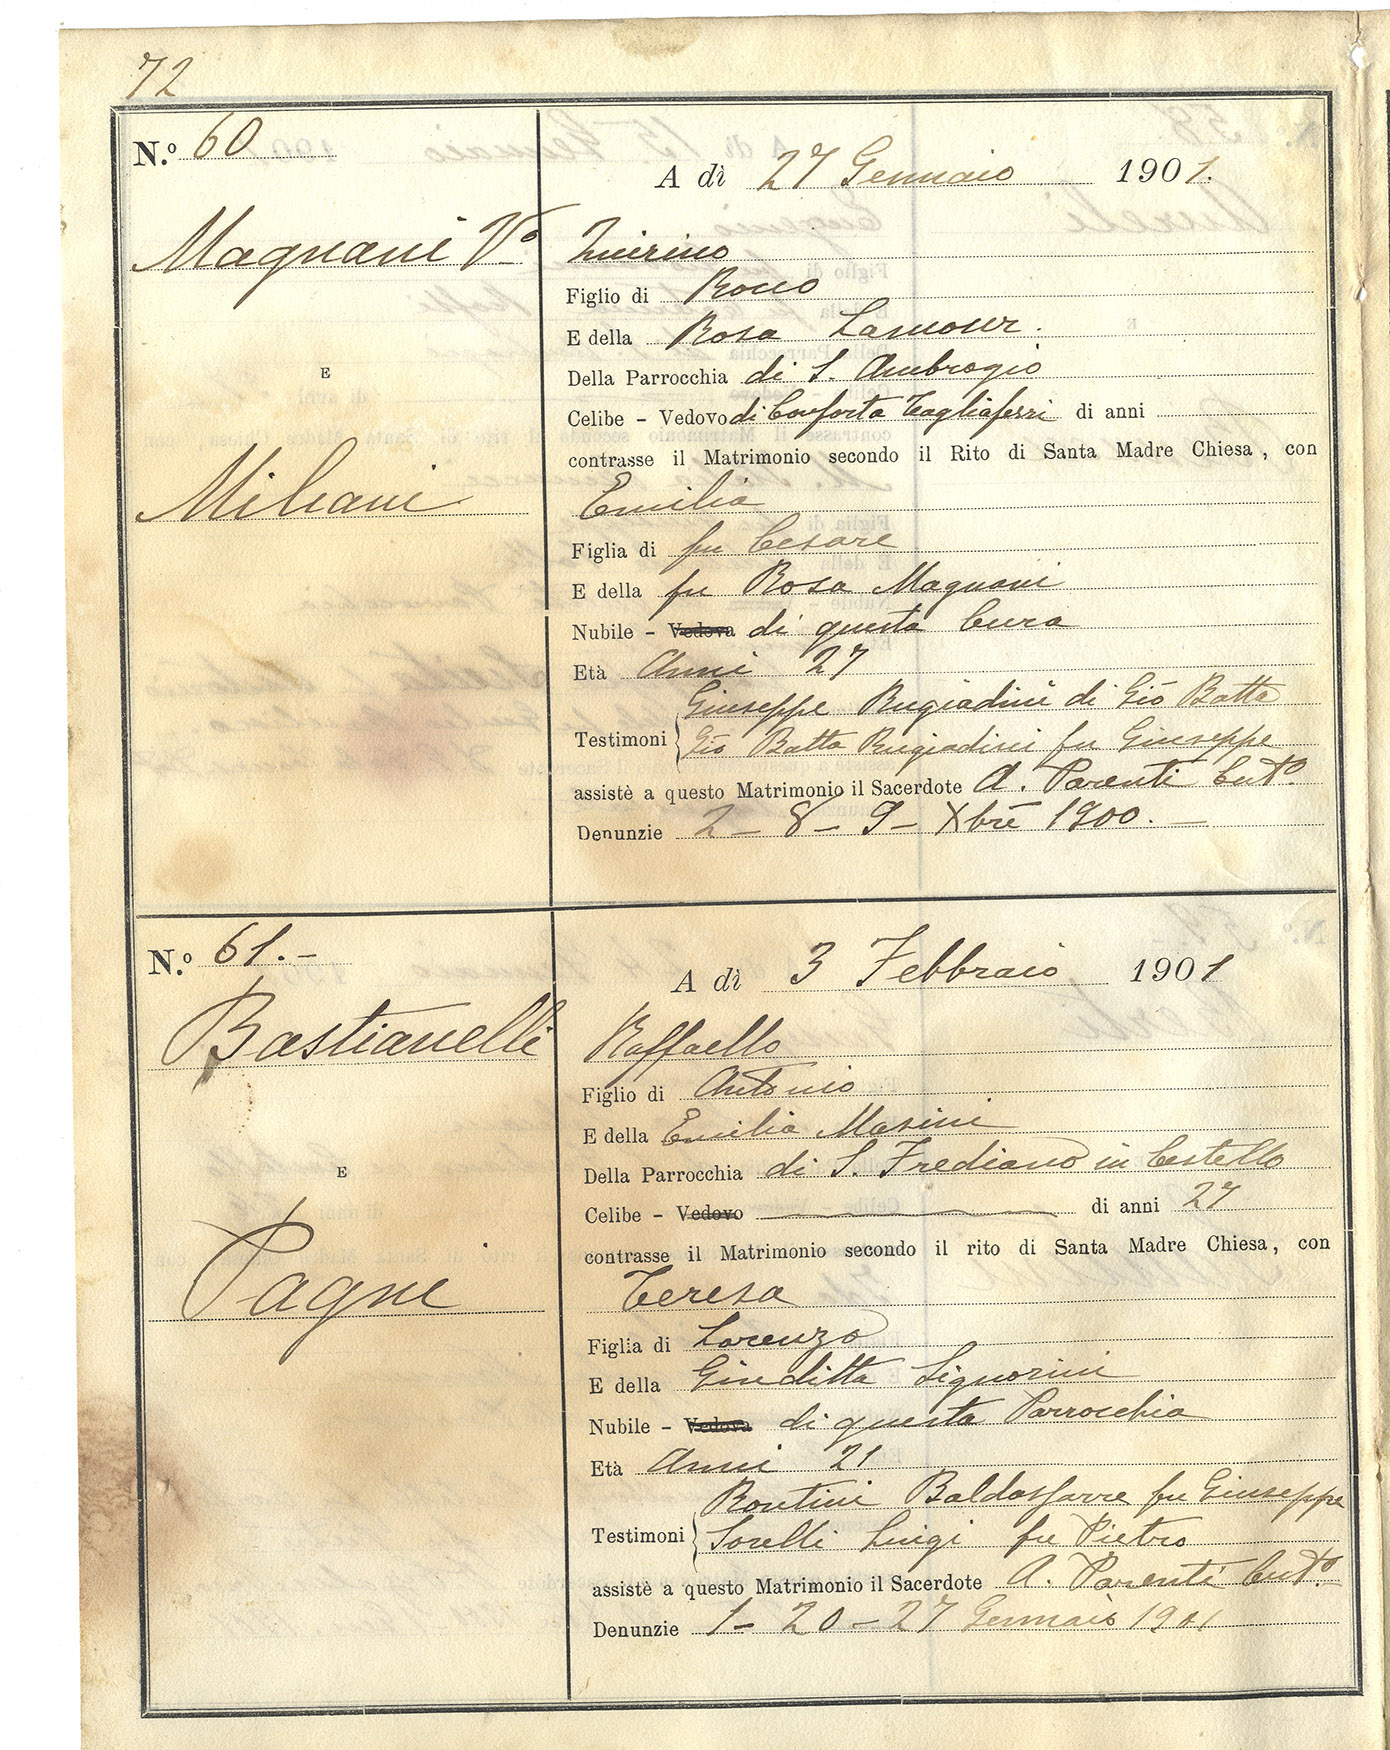 72
N.º 60
A dì 27 Gennaio 1901.
Magnani Vº Quirino
Figlio di Rocco
E della Rosa Lamour.
E
Della Parrocchia di S. Ambrogio
Celibe - Vedovo di Conforta Tagliaferri di anni
contrasse il Matrimonio secondo il Rito di Santa Madre Chiesa, con
Miliani Emilia
Figlia di fu Cesare
E della fu Rosa Magnani
Nubile - Vedova di questa Cura
Età Anni 27
Giuseppe Rugiadini di Gio Batta
Testimoni Gio Batta Rugiadini fu Giuseppe
assistè a questo Matrimonio il Sacerdote A. Parenti Curº
Denunzie 2 - 8 - 9 - Xbre 1900. -
N.º 61.-
A dì 3 Febbraio 1901
Bastianelli Raffaello
Figlio di Antonio
E della Emilia Masini
E
Della Parrocchia di S. Frediano in Cestello
Celibe - Vedovo di anni 27
contrasse il Matrimonio secondo il rito di Santa Madre Chiesa, con
Pagni Teresa
Figlia di Lorenzo
E della Giuditta Signorini
Nubile - Vedova di questa Parrocchia
Età Anni 21
Rontini Baldassarre fu Giuseppe
Testimoni Sorelli Luigi fu Pietro
assistè a questo Matrimonio il Sacerdote A. Parenti Curº
Denunzie 1 - 20 - 27 Gennaio 1901